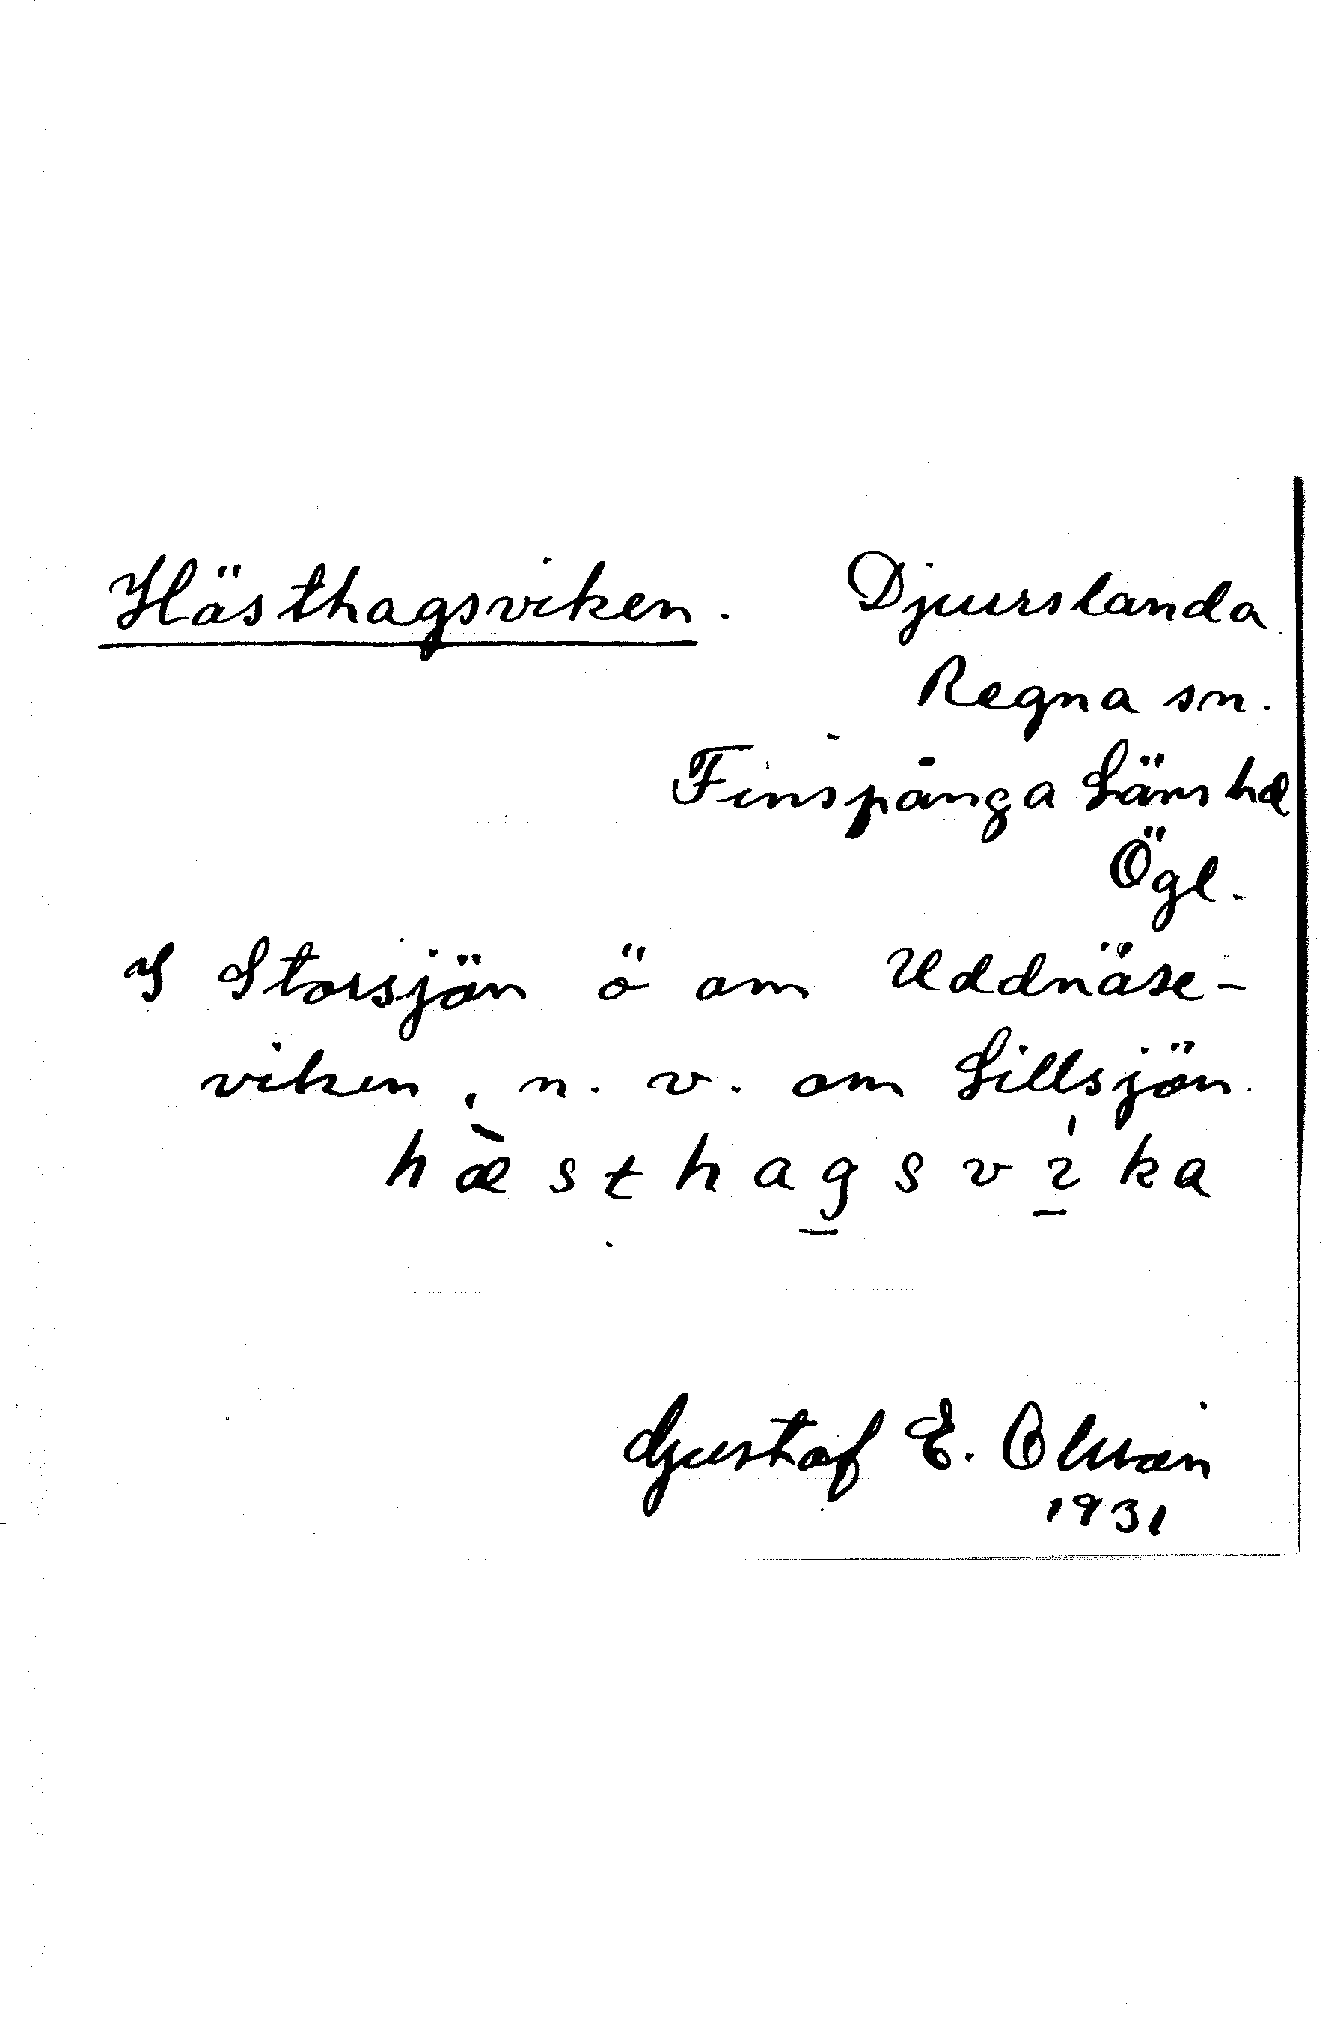 Hästhagsviken. Djurslanda
Regna sn.
Finspånga Läns hd
Ögl.
I Storsjön ö om Uddnäse-
viken, n. v. om Lillsjön.
hæ̀sthagsvíka
Gustaf E. Olsson
1931